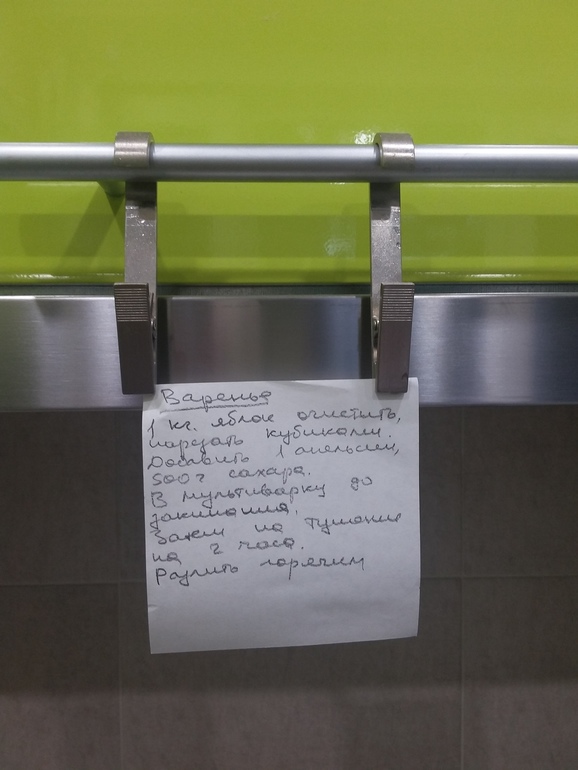 Варенье
1 кг. яблок очистить,
нарезать кубиками.
Добавить 1 апельсин,
500 г сахара.
В мультиварку до
закипания,
Затем на тушение
на 2 часа.
Разлить горячим